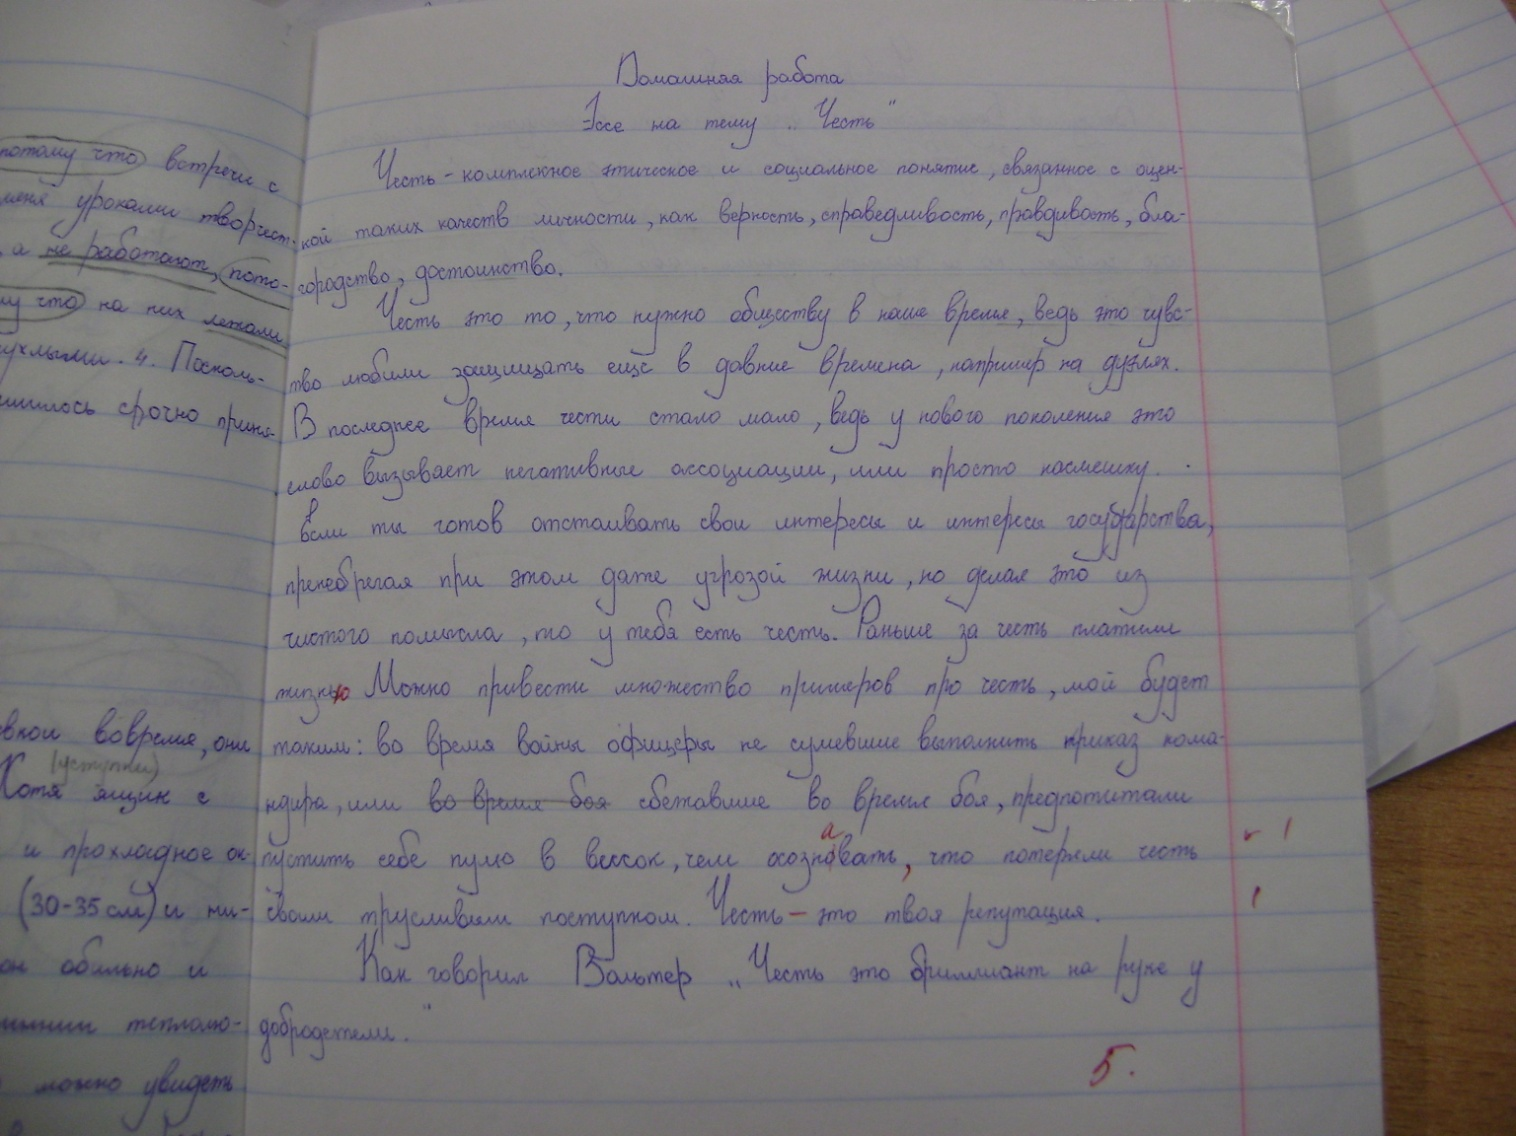 потому что встречи с
меня уроками творчест-
, а не работают, пото-
му что на них лежали
ухлыми. 4. Посколь-
шилось срочно приня-
вкой вовремя, они
(уступки)
Хотя ящик с
и прохладное ок-
(30-35 см) и ни-
он обильно и
теплолю-
можно увидеть
Домашняя работа
Эссе на тему „Честь"
Честь - комплексное этическое и социальное понятие, связанное с оцен-
кой таких качеств личности, как верность, справедливость, правдивость, бла-
городство, достоинство.
Честь это то, что нужно обществу в наше время, ведь это чувс-
тво любили защищать ещё в давние времена, например на дуэлях.
В последнее время чести стало мало, ведь у нового поколения это
слово вызывает негативные ассоциации, или просто насмешку.
Если ты готов отстаивать свои интересы и интересы государства,
пренебрегая при этом даже угрозой жизни, но делая это из
чистого помысла, то у тебя есть честь. Раньше за честь платили
жизнью Можно привести множество примеров про честь, мой будет
таким: во время войны офицеры не сумевшие выполнить приказ кома-
ндира, или во время боя сбежавшие во время боя, предпочитали
пустить себе пулю в вессок, чем осознавать, что потеряли честь
своим трусливым поступком. Честь – это твоя репутация.
Как говорил Вольтер „Честь это бриллиант на руке у
добродетели."
5.